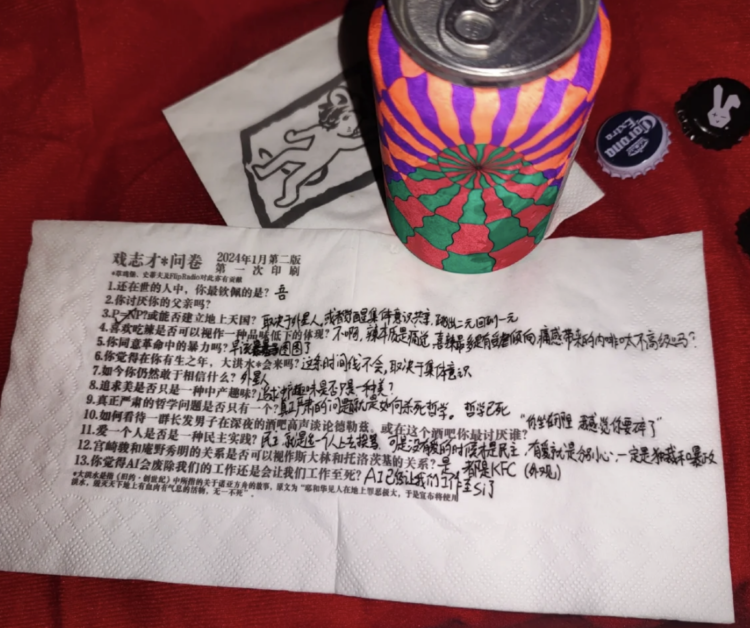 Corona
Extra
戏志才*问卷 2024年1月第二版
第一次印刷
1.还在世的人中,你最钦佩的是? 吾
2.你讨厌你的父亲吗?
3.P=NP?或能否建立地上天国? 取决于外星人,或者觉醒集体意识共享,跳出二元回到一元
4.喜欢吃辣是否可以视作一种品味低下的体现? 不啊,辣本质是痛觉,喜辣最多是有受虐倾向,痛感带来的内啡肽不高级吗?
5.你同意革命中的暴力吗? 圄圄了
6.你觉得在你有生之年,大洪水*会来吗? 这条时间线不会,取决于集体意识
7.如今你仍然敢于相信什么? 外星人
8.追求美是否只是一种中产趣味? 追求中产趣味是否只是一种美?
9.真正严肃的哲学问题是否只有一个? 真正严肃的问题就是如何杀死哲学。 哲学已死
10.如何看待一群长发男子在深夜的酒吧高声谈论德勒兹,或在这个酒吧你最讨厌谁?
11.爱一个人是否是一种民主实践? 民主就是让一个人去投票,可是没有爱的时候不是民主,有爱就是小心:一定是独裁和暴政
12.宫崎骏和庵野秀明的关系是否可以视作斯大林和托洛茨基的关系? 是 都是KFC (外观)
13.你觉得AI会废除我们的工作还是会让我们工作至死? AI已经让我们工作至si了
*大洪水是指《旧约·创世纪》中所指的关于诺亚方舟的故事,原文为“耶和华见人在地上罪恶很大,于是宣布将使用
洪水,毁灭天下地上有血肉有气息的活物,无一不死”。